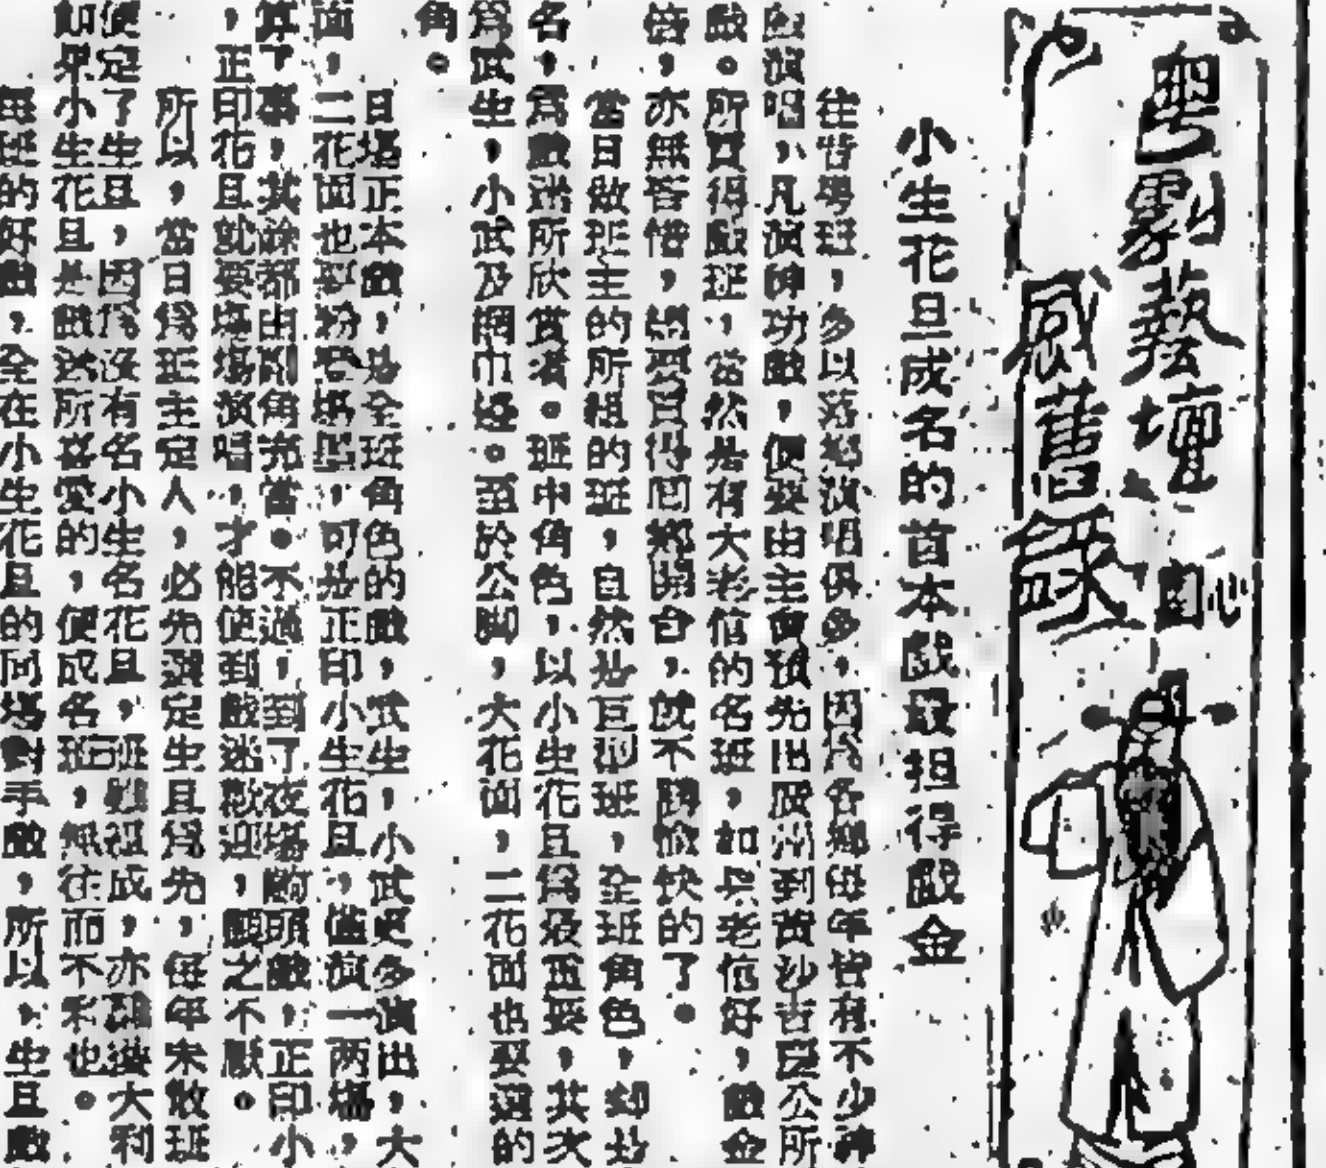 粵劇藝壇
感舊錄
自心
小生花旦成名的首本戲最担得戲金
往昔粵班，多以落鄉演唱俱多，因為各鄉每年皆有不少神
戲演唱，凡演神功戲，便要由主會預先出廣州到黃沙吉慶公所
戲。所買得戲班，當然是有大老倌的名班，如果老倌好，戲金
倍，亦無吝惜，買得回鄉開台，就不勝愉快的了。
當日做班主的所組的班，自然是巨型班，全班角色，却是
名，為戲迷所欣賞者。班中角色，以小生花旦為最重要，其次
為武生，小武及網巾邊。至於公脚，大花面，二花面也要選的
角。
日場正本戲，是全班角色的戲，武生，小武更多演出，大
面，二花面也要粉墨登場，可是正印小生花旦，僅演一兩場，
算了事，其餘都由閒角充當。不過，到了夜場齣頭戲，正印小
，正印花旦就要塲塲演唱，才能使到戲迷歡迎，觀之不厭。
所以，當日為班主定人，必先選定生旦為先，每年未散班
便定了生旦，因為沒有名小生名花旦，班雖組成，亦難獲大利
如果小生花旦是戲迷所喜愛的，便成名班，無往而不利也。
每班的好戲，全在小生花旦的同場對手戲，所以，生旦戲